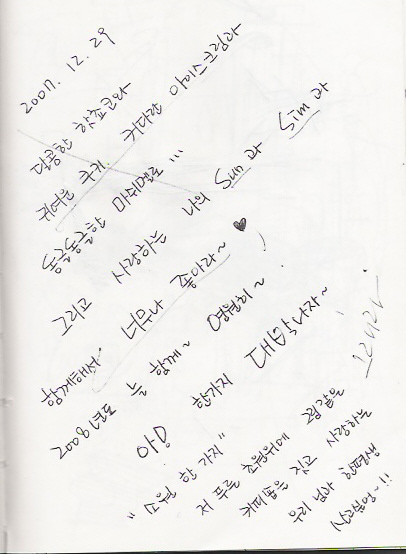 2007. 12. 29
달콤한 핫쵸코와
귀여운 쿠키, 커다란 아이스크림과
동글동글한 마쉬멜로 ...
그리고 사랑하는 나의 Sun과 Sim과
함께해서 너무나 좋아라~ ♥
2008년도 늘 함께~ 영원히~ !
아잉 한가지 대박나자~
"소원 한 가지"
저 푸른 초원위에 그림같은
커피숍을 짓고 사랑하는
우리 님과 한평생
살고싶엉~!!